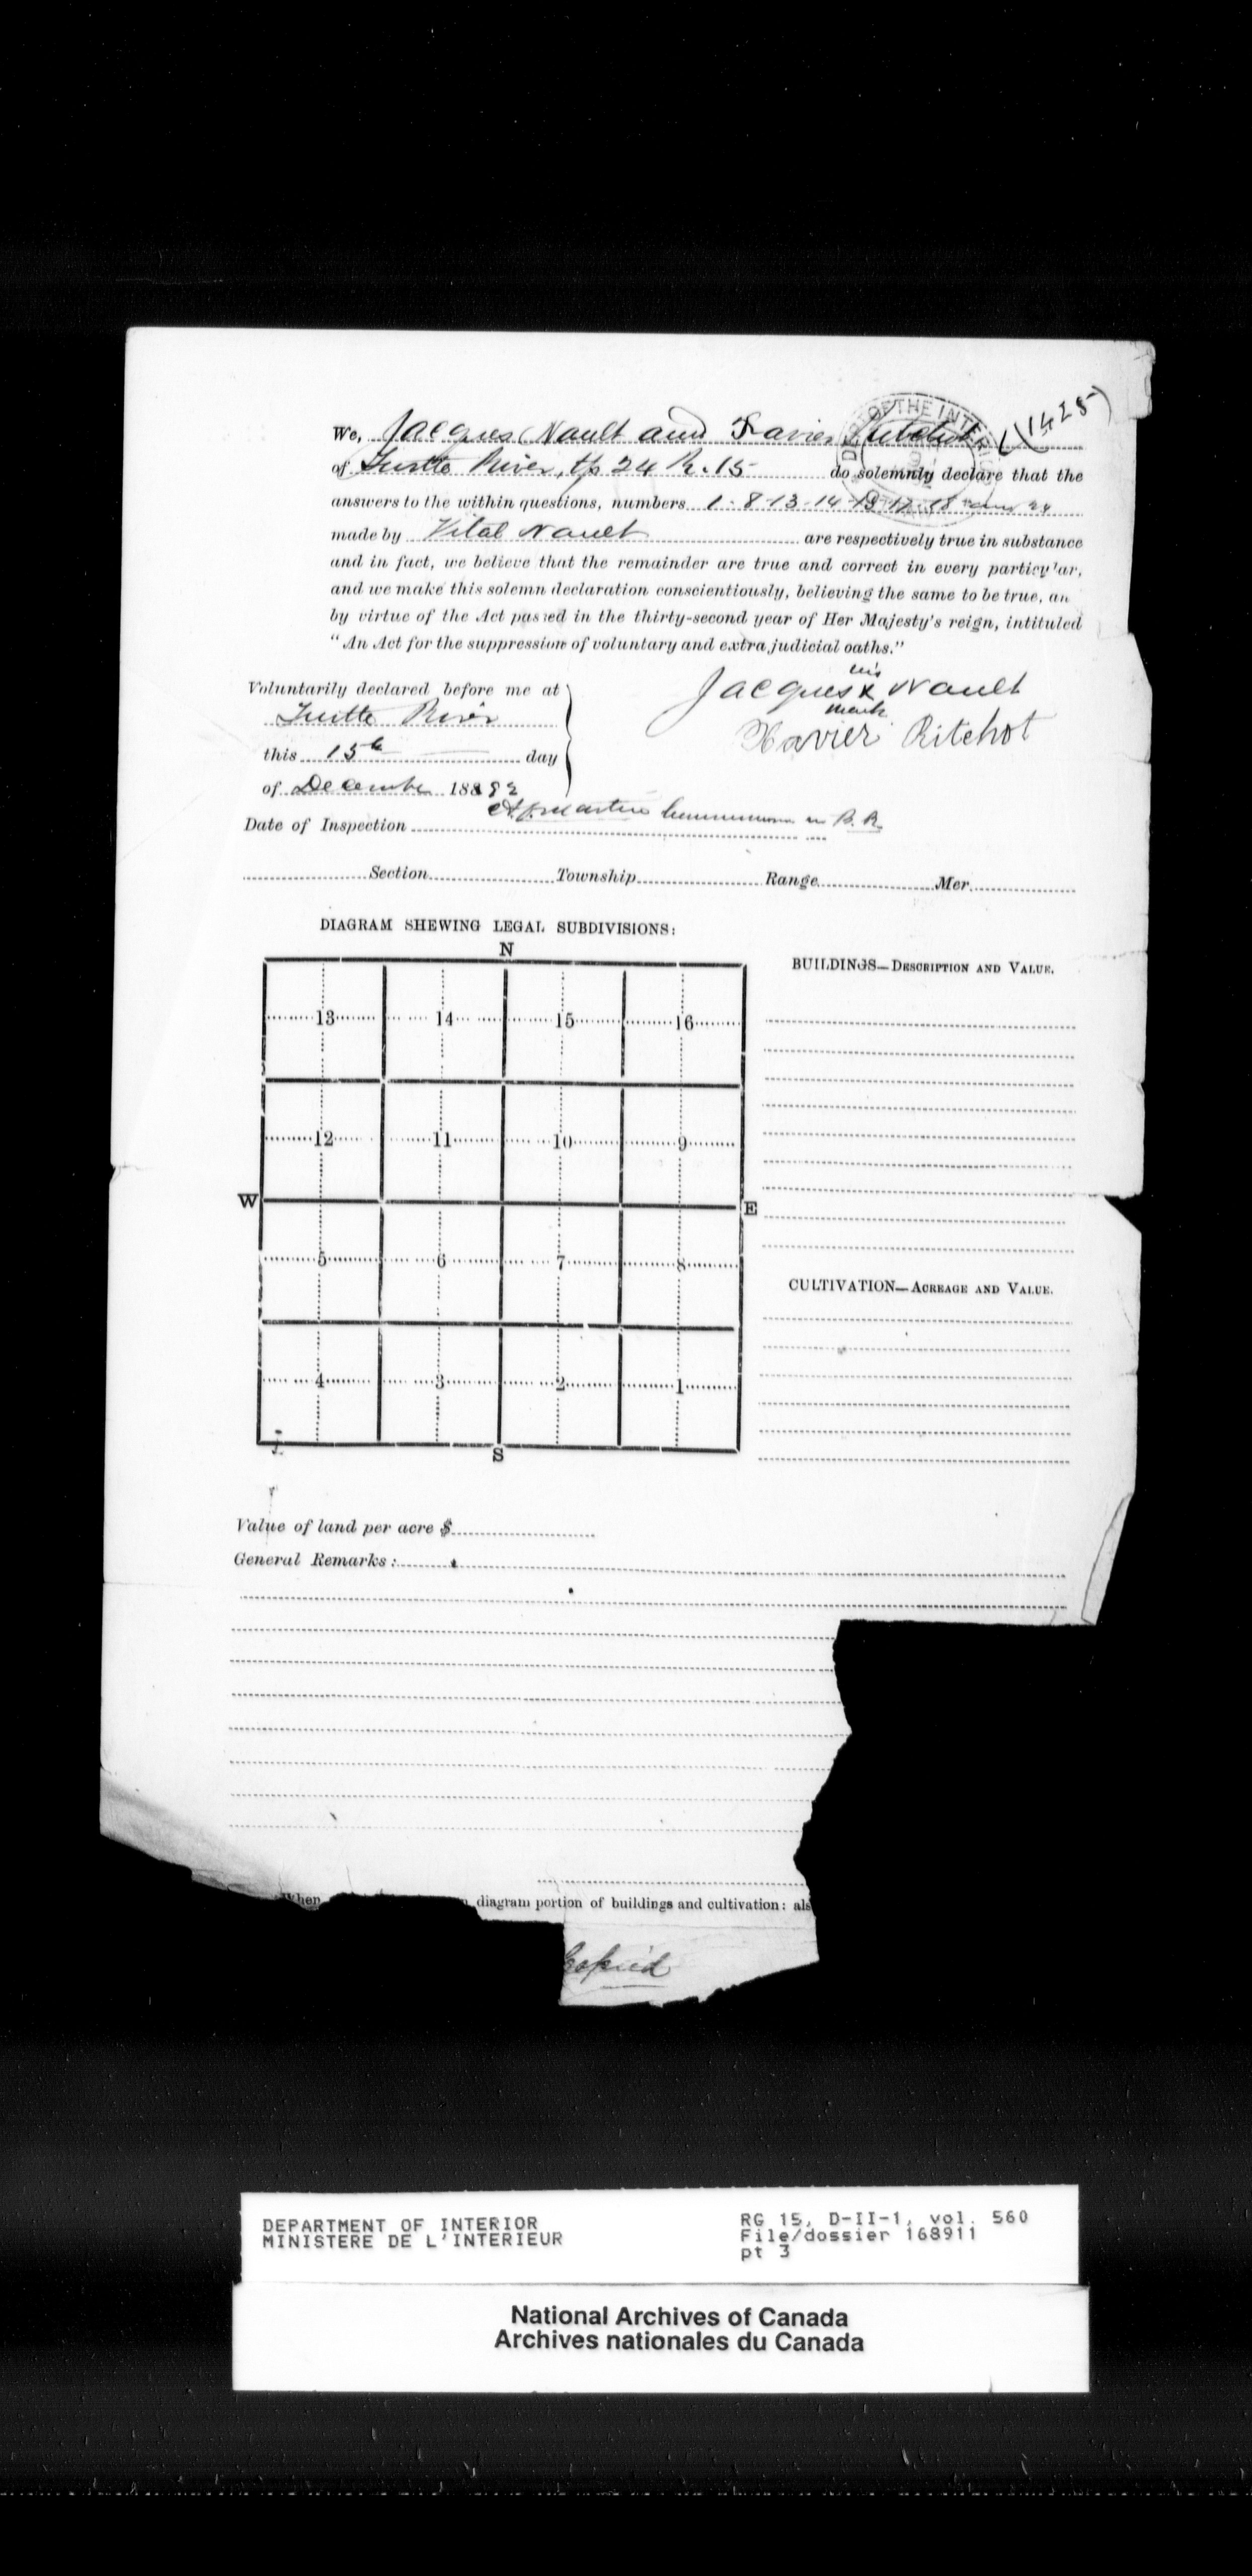 (1425)
DEPT OF THE INTERIOR
We, Jacques Nault and Xavier Ritchot
of Turtle River, tp 24 R. 15 do solemnly declare that the
answers to the within questions, numbers 1-8-13-14-15-17-18 and 24
made by Vital Nault are respectively true in substance
and in fact, we believe that the remainder are true and correct in every particular,
and we make this solemn declaration conscientiously, believing the same to be true, an
by virtue of the Act passed in the thirty-second year of Her Majesty's reign, intituled
"An Act for the suppression of voluntary and extra judicial oaths."
Voluntarily declared before me at
Turtle River
this 15th day
of December 1892
his
Jacques x Nault
mark
Xavier Ritchot
Martin Commissioner in B. R.
Date of Inspection
Section Township Range Mer.
DIAGRAM SHEWING LEGAL SUBDIVISIONS:
N
BUILDINGS—DESCRIPTION AND VALUE.
13 14 15 16
12 11 10 9
W E
5 6 7 8
CULTIVATION—ACREAGE AND VALUE.
4 3 2 1
S
Value of land per acre $
General Remarks:
When diagram portion of buildings and cultivation: als
Copied
DEPARTMENT OF INTERIOR
MINISTERE DE L'INTERIEUR
RG 15, D-II-1, vol. 560
File/dossier 168911
pt 3
National Archives of Canada
Archives nationales du Canada